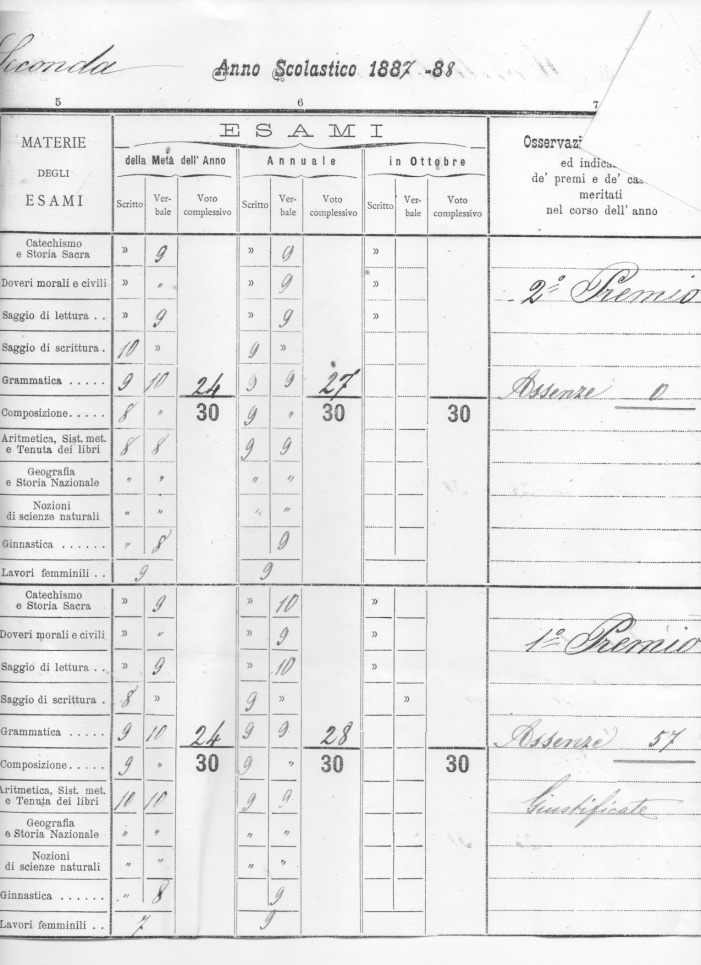 Seconda
Anno Scolastico 1887-88
5 6 7
MATERIE
DEGLI
ESAMI
ESAMI
della Metà dell' Anno
Annuale
in Ottobre
Scritto Ver-bale Voto complessivo
Scritto Ver-bale Voto complessivo
Scritto Ver-bale Voto complessivo
Osservazi
ed indica
de' premi e de' cas
meritati
nel corso dell' anno
Catechismo
e Storia Sacra » 9 » 9 »
Doveri morali e civili » " » 9 »
2º Premio
Saggio di lettura . . » 9 » 9 »
Saggio di scrittura . 10 » 9 »
Grammatica . . . . . 9 10 24 9 9 27
Assenze 0
Composizione . . . . . 8 " 30 9 " 30 30
Aritmetica, Sist. met.
e Tenuta dei libri 8 8 9 9
Geografia
e Storia Nazionale " " " "
Nozioni
di scienze naturali " " " "
Ginnastica . . . . . . " 8 9
Lavori femminili . . 9 9
Catechismo
e Storia Sacra » 9 » 10 »
Doveri morali e civili » " » 9 »
1º Premio
Saggio di lettura . . » 9 » 10 »
Saggio di scrittura . 8 » 9 » »
Grammatica . . . . . 9 10 24 9 9 28
Assenze 57
Composizione . . . . . 9 " 30 9 " 30 30
Aritmetica, Sist. met.
e Tenuta dei libri 10 10 9 9
Giustificate
Geografia
e Storia Nazionale " " " "
Nozioni
di scienze naturali " " " "
Ginnastica . . . . . . " 8 9
Lavori femminili . . 7 9